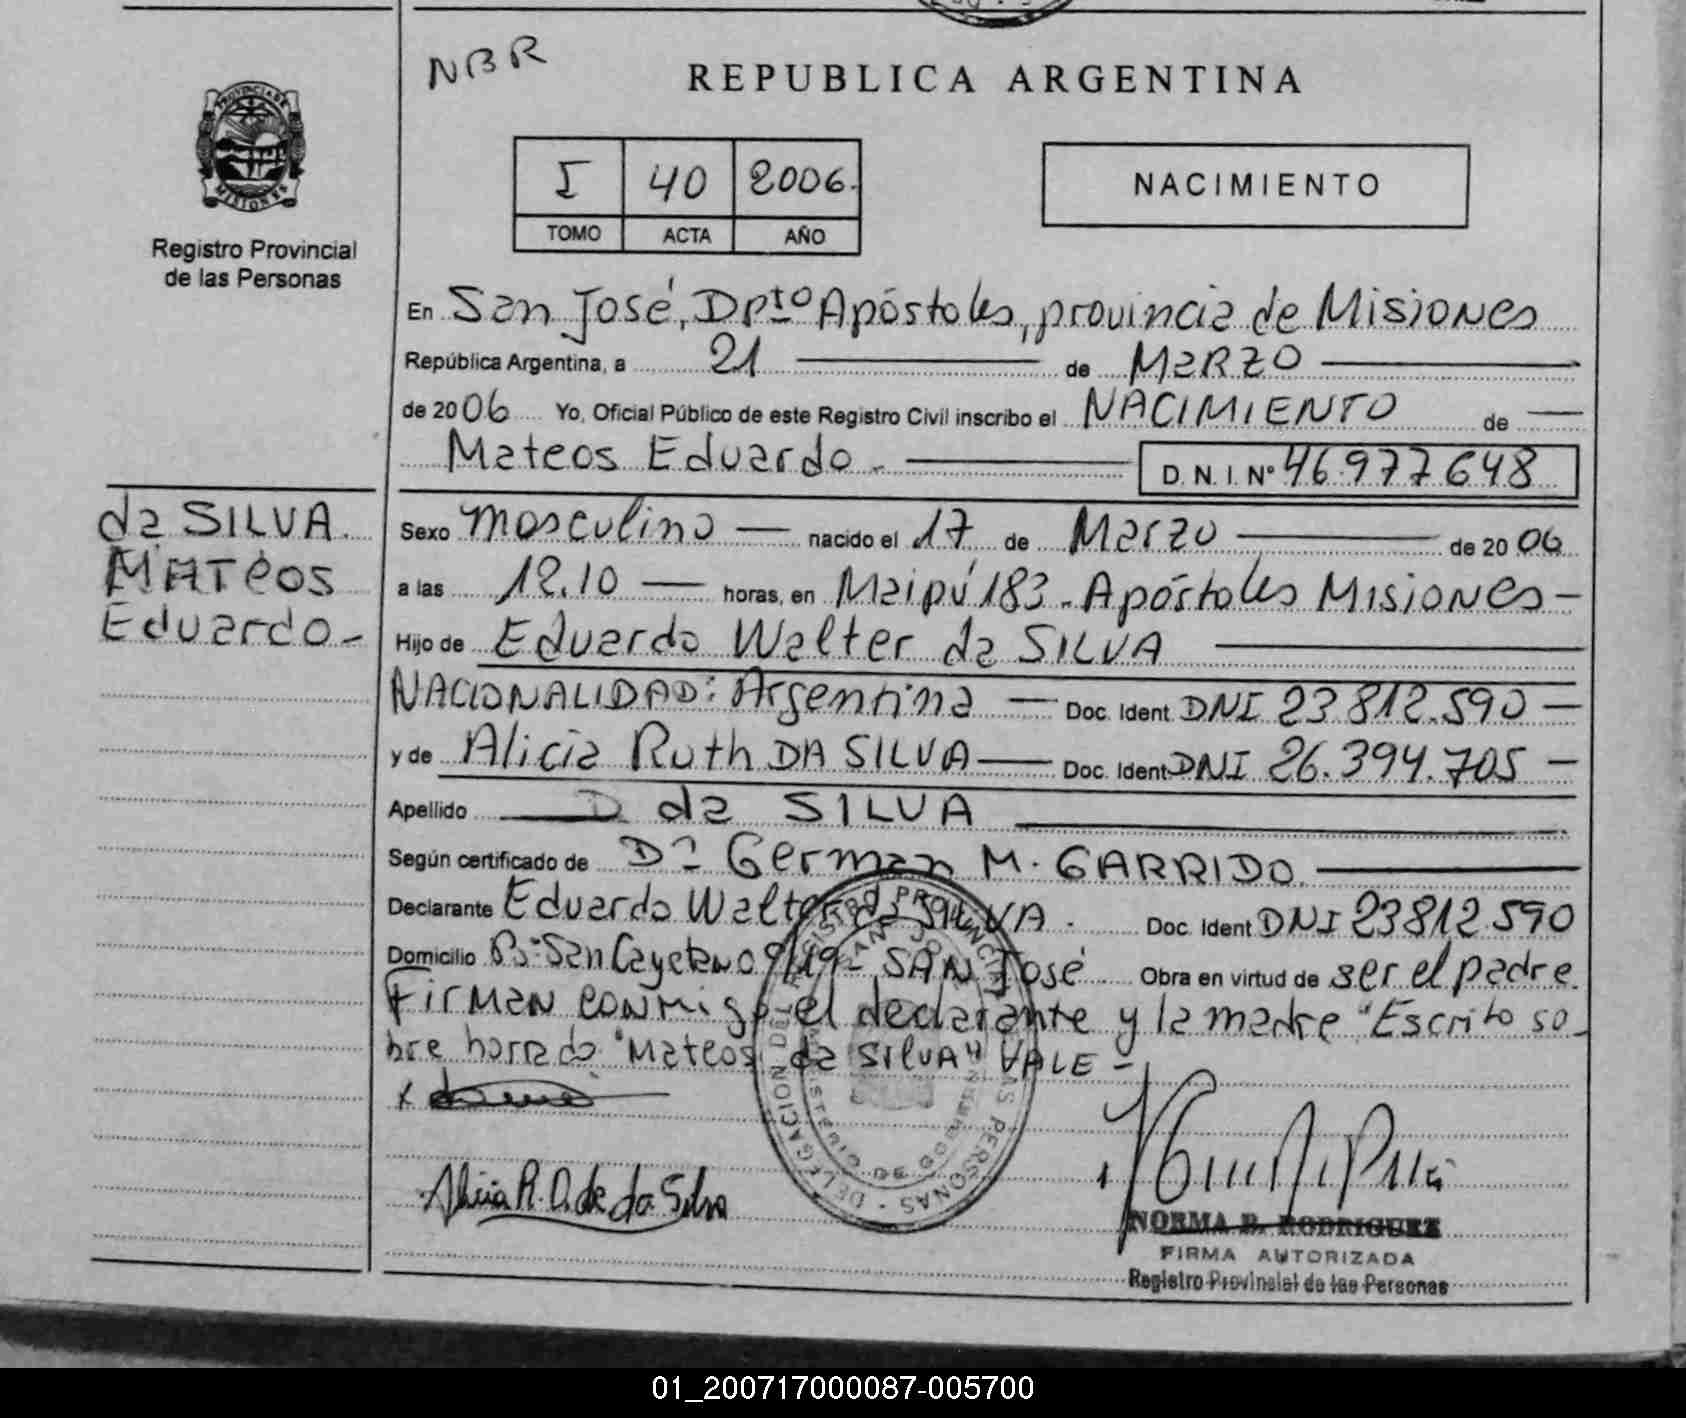 NBR
REPUBLICA ARGENTINA
PROVINCIA DE
MISIONES
Registro Provincial
de las Personas
I 40 2006.
TOMO ACTA AÑO
NACIMIENTO
En San José, Dpto Apóstoles, provincia de Misiones
República Argentina, a 21 de Marzo
de 2006 Yo, Oficial Público de este Registro Civil inscribo el NACIMIENTO de
Mateos Eduardo.
D. N. I. Nº 46.977.648
da SILVA.
Mateos
Eduardo-
Sexo masculino nacido el 17 de Marzo de 2006
a las 12.10 horas, en Maipú 183. Apóstoles Misiones-
Hijo de Eduardo Walter da SILVA
NACIONALIDAD: Argentina Doc. Ident DNI 23.812.590
y de Alicia Ruth DA SILVA Doc. Ident DNI 26.394.705
Apellido D da SILVA
Según certificado de Dr German M. GARRIDO.
Declarante Eduardo Walter da SILVA. Doc. Ident DNI 23812590
Domicilio Bº San Cayetano 9/19- SAN José Obra en virtud de ser el padre.
Firman conmigo el declarante y la madre "Escrito so-
bre borrado "Mateos da SILVA" VALE-
x
REGISTRO PROVINCIAL DE LAS PERSONAS - DELEGACION
SAN JOSE
MINISTERIO DE GOBIERNO
Alicia R. D. de da Silva
NORMA B. RODRIGUEZ
FIRMA AUTORIZADA
Registro Provincial de las Personas
01_200717000087-005700